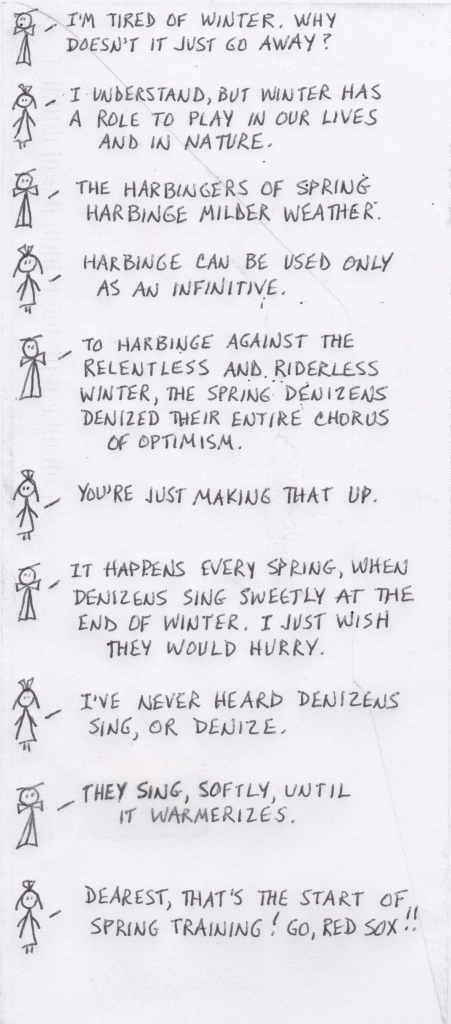 I'M TIRED OF WINTER. WHY
DOESN'T IT JUST GO AWAY?
I UNDERSTAND, BUT WINTER HAS
A ROLE TO PLAY IN OUR LIVES
AND IN NATURE.
THE HARBINGERS OF SPRING
HARBINGE MILDER WEATHER.
HARBINGE CAN BE USED ONLY
AS AN INFINITIVE.
TO HARBINGE AGAINST THE
RELENTLESS AND RIDERLESS
WINTER, THE SPRING DENIZENS
DENIZED THEIR ENTIRE CHORUS
OF OPTIMISM.
YOU'RE JUST MAKING THAT UP.
IT HAPPENS EVERY SPRING, WHEN
DENIZENS SING SWEETLY AT THE
END OF WINTER. I JUST WISH
THEY WOULD HURRY.
I'VE NEVER HEARD DENIZENS
SING, OR DENIZE.
THEY SING, SOFTLY, UNTIL
IT WARMERIZES.
DEAREST, THAT'S THE START OF
SPRING TRAINING! GO, RED SOX!!